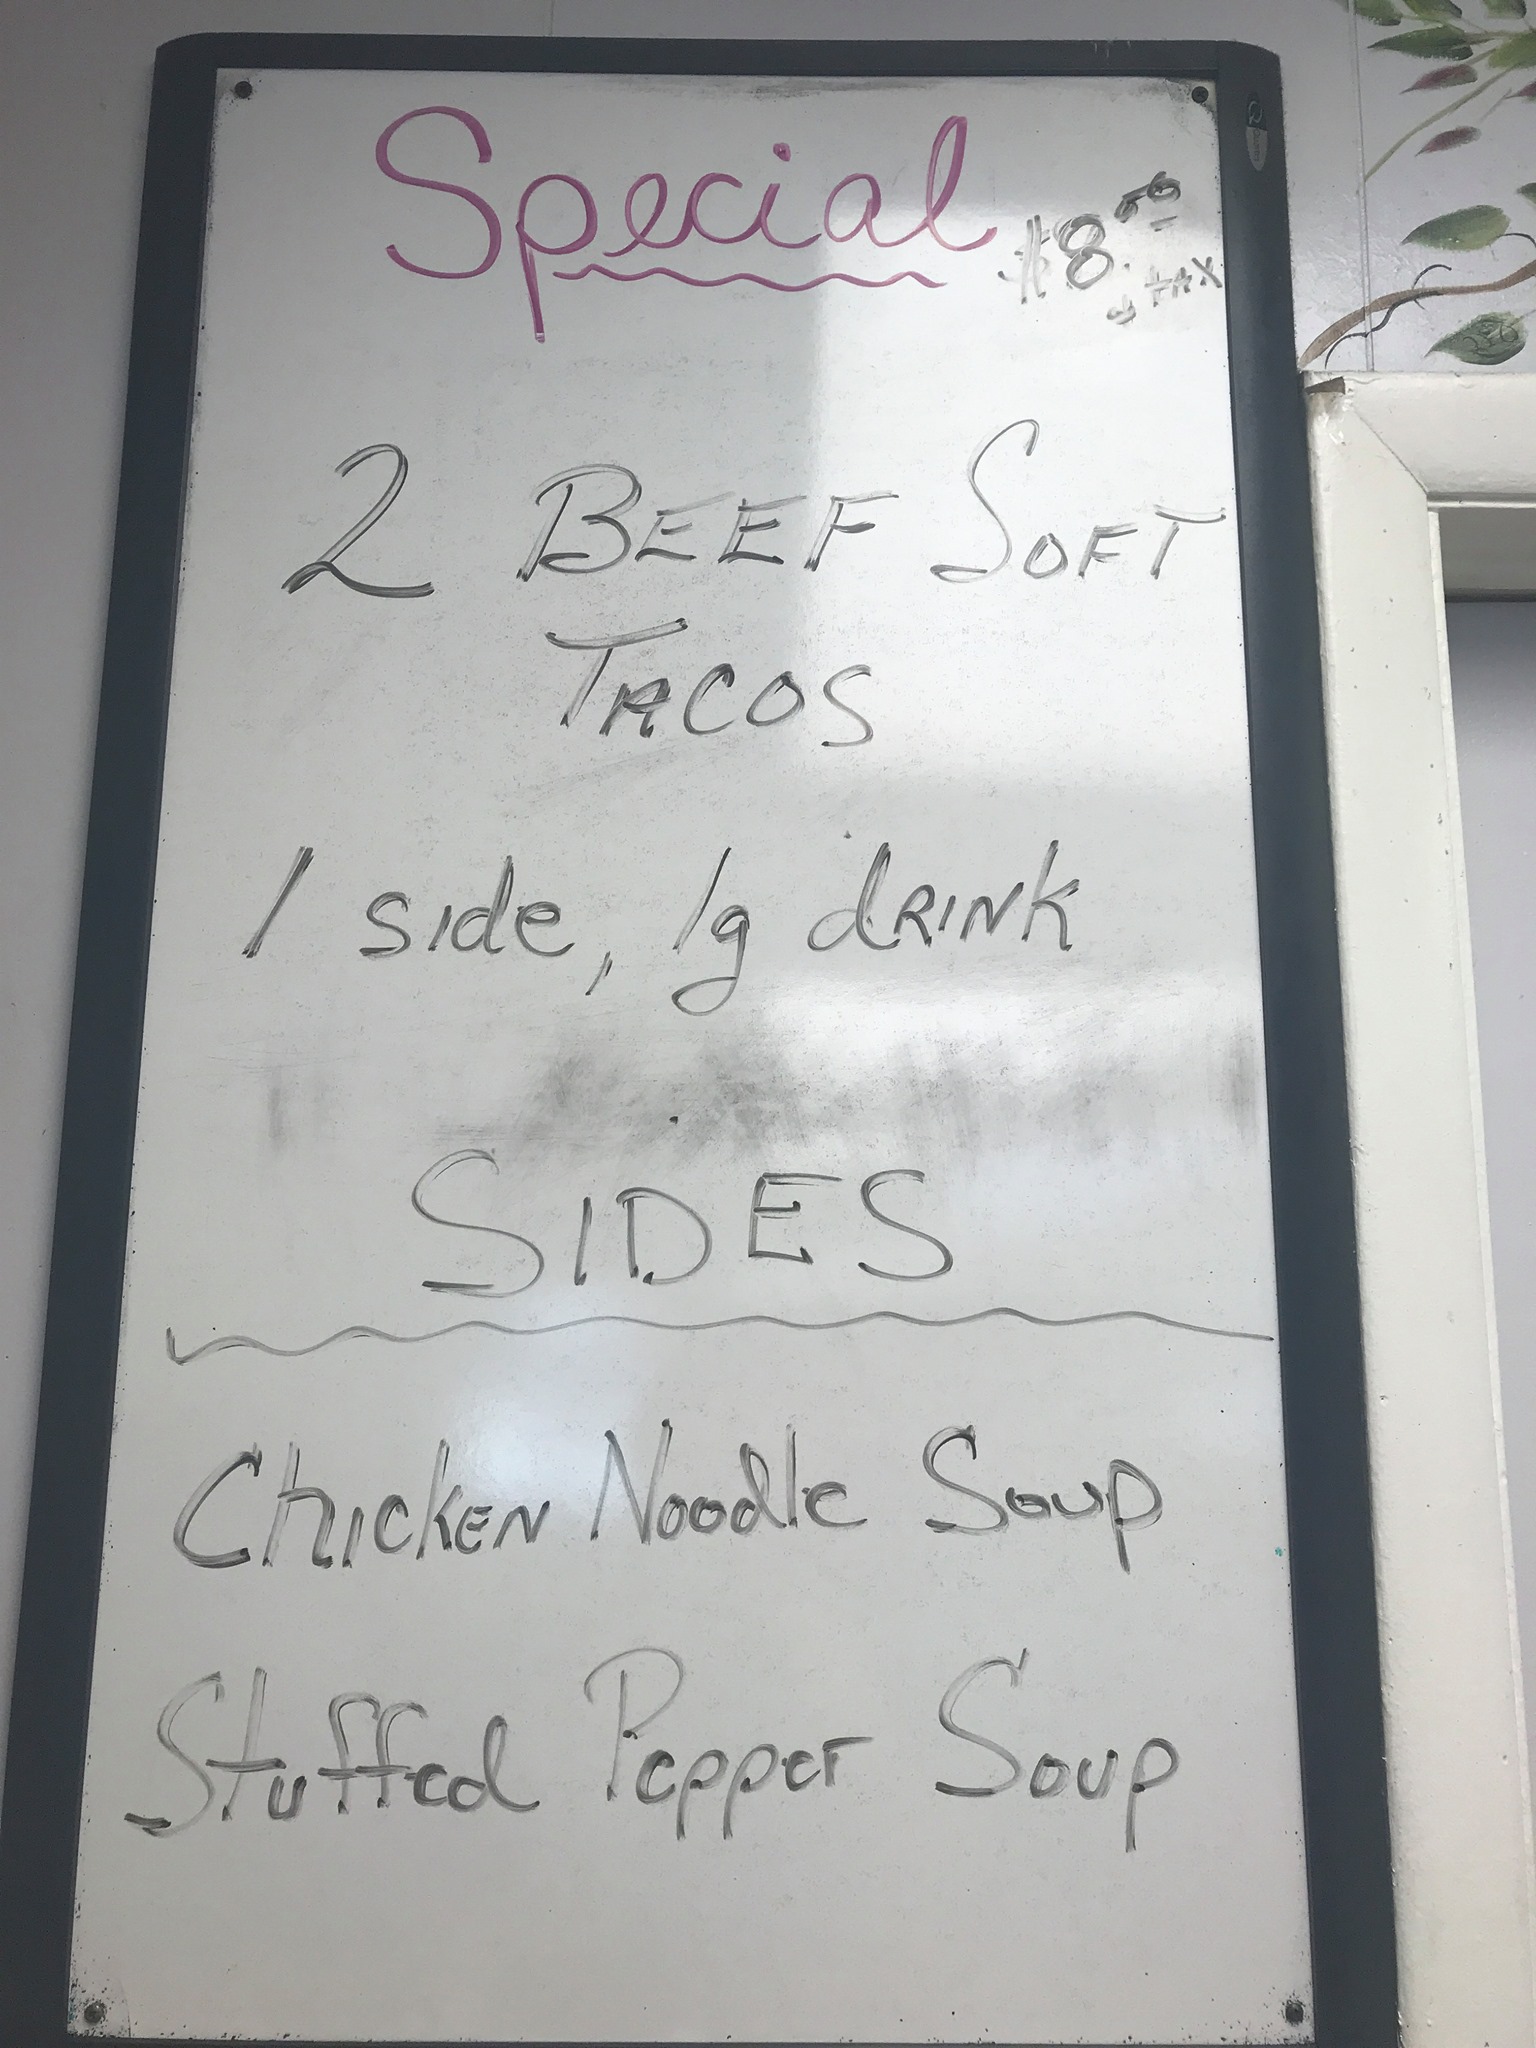 Special
$8.00
& tax
2 BEEF SOFT
TACOS
1 side, lg dRINK
SIDES
Chicken Noodle Soup
Stuffed Pepper Soup